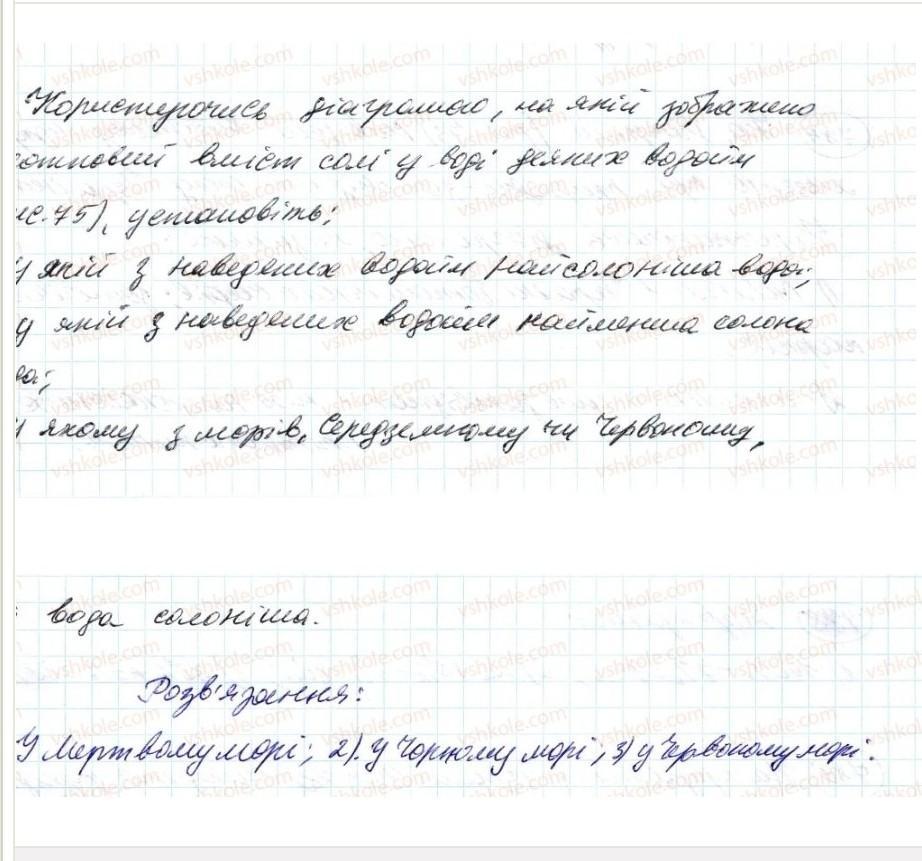 Користуючись діаграмою, на якій зображено
отковий вміст солі у воді деяких водойм
ис. 75), установіть:
у якій з наведених водойм найсолоніша вода;
у якій з наведених водойм найменша солона
да;
у якому з морів, Середземному чи Червоному,
вода солоніша.
Розв'язання:
У Мертвому морі; 2). у Чорному морі; 3) у Червоному морі.